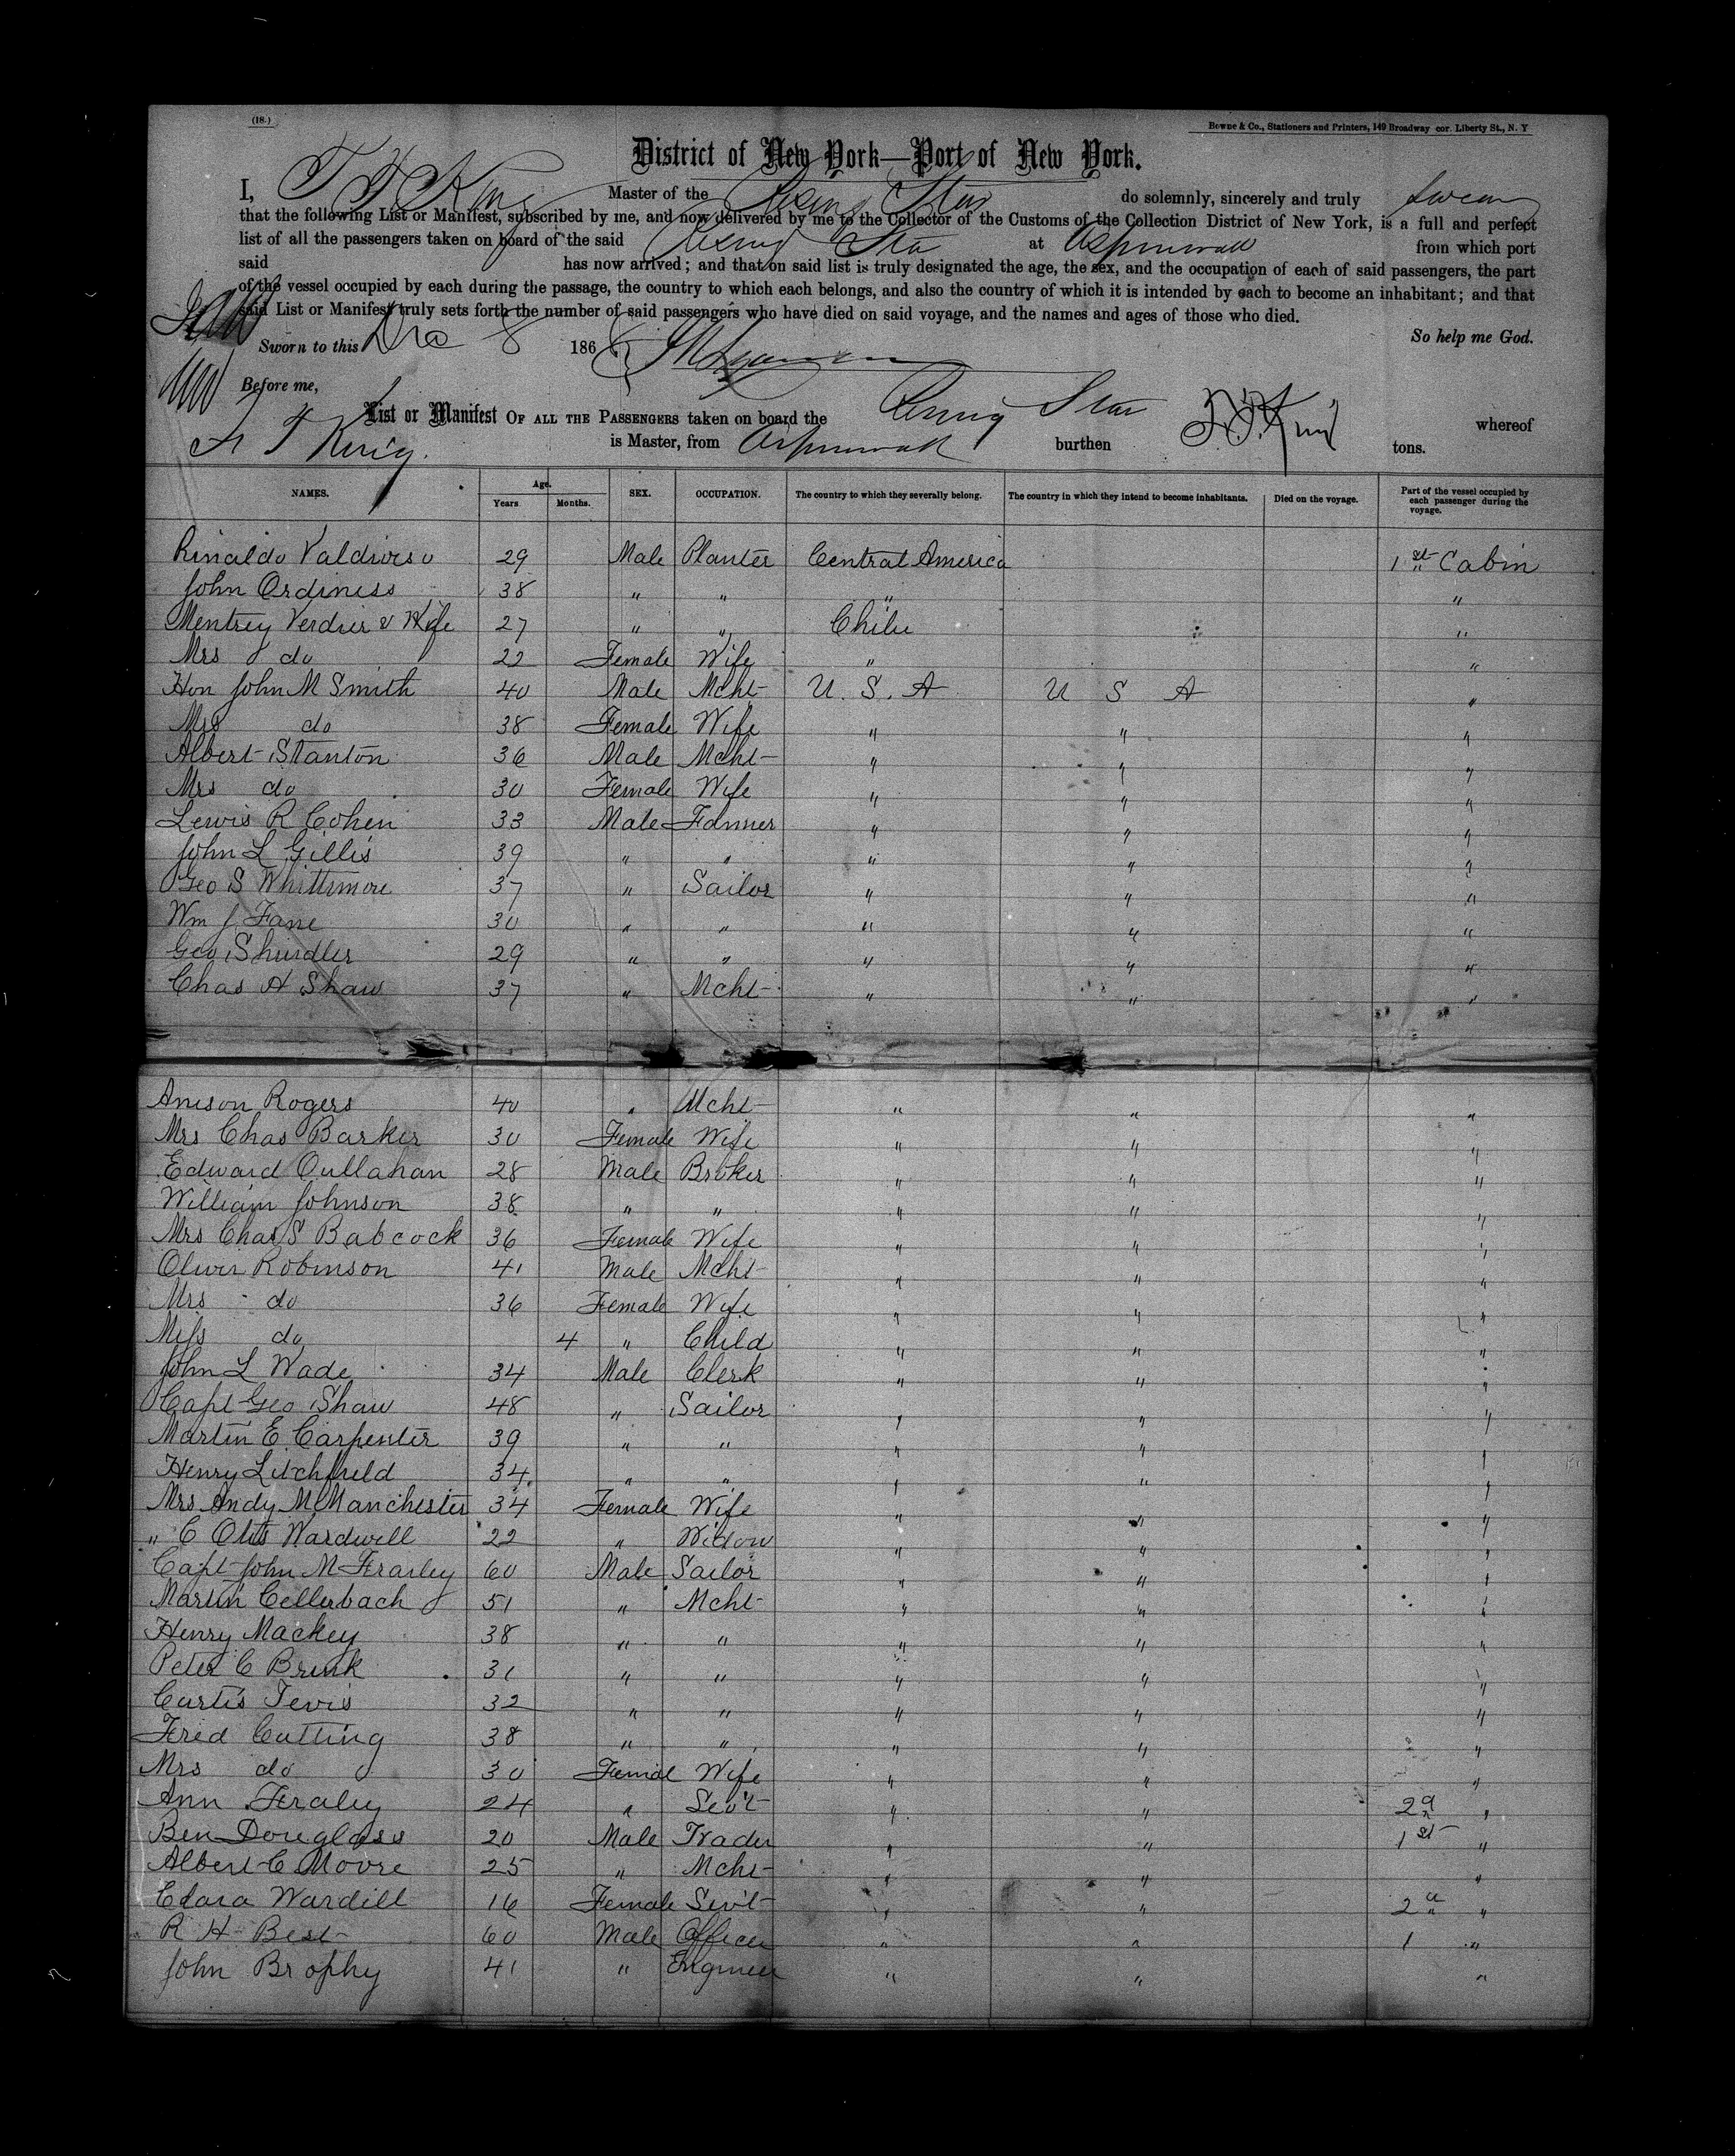 (18.)
Bowne & Co., Stationers and Printers, 149 Broadway cor. Liberty St., N. Y
District of New York—Port of New York.
I, King Master of the Rising Star do solemnly, sincerely and truly swear
that the following List or Manifest, subscribed by me, and now delivered by me to the Collector of the Customs of the Collection District of New York, is a full and perfect
list of all the passengers taken on board of the said Rising Star at Aspinwall from which port
said has now arrived; and that on said list is truly designated the age, the sex, and the occupation of each of said passengers, the part
of the vessel occupied by each during the passage, the country to which each belongs, and also the country of which it is intended by each to become an inhabitant; and that
said List or Manifest truly sets forth the number of said passengers who have died on said voyage, and the names and ages of those who died.
So help me God.
Sworn to this 8 186
Before me,
List or Manifest OF ALL THE PASSENGERS taken on board the Rising Star whereof
is Master, from Aspinwall burthen tons.
NAMES. Age. Years Months. SEX. OCCUPATION. The country to which they severally belong. The country in which they intend to become inhabitants. Died on the voyage. Part of the vessel occupied by each passenger during the voyage.
Rinaldo 29 Male Planter Central America 1st Cabin
John Ordiness 38 " " " "
Mentrey Verdier & Wife 27 " " Chile "
Mrs do 22 Female Wife " "
Hon John M Smith 40 Male Mcht U. S. A U S A "
Mrs do 38 Female Wife " " "
Albert Stanton 36 Male Mcht " " "
Mrs do 30 Female Wife " " "
Lewis R Cohen 33 Male Farmer " " "
John L Gillis 39 " " " " "
Geo S Whittimore 37 " Sailor " " "
Wm J Fane 30 " " " " "
Geo Shindler 29 " " " " "
Chas H Shaw 37 " Mcht " " "
Anson Rogers 40 " Mcht " " "
Mrs Chas Barker 30 Female Wife " " "
Edward Cullahan 28 Male Broker " " "
William Johnson 38 " " " " "
Mrs Chas S Babcock 36 Female Wife " " "
Oliver Robinson 41 Male Mcht " " "
Mrs do 36 Female Wife " " "
Miss do 4 " Child " " "
John L Wade 34 Male Clerk " " "
Capt Geo Shaw 48 " Sailor " " "
Martin E Carpenter 39 " " " " "
Henry Litchfield 34 " " " " "
Mrs Andy M Manchester 34 Female Wife " " "
" C Otis Wardwell 22 " Widow " " "
Capt John M Fraley 60 Male Sailor " " "
Martin Cellerbach 51 " Mcht " " "
Henry Mackey 38 " " " " "
Peter C Brink 31 " " " " "
Curtis Tevis 32 " " " " "
Fred Cutting 38 " " " " "
Mrs do 30 Femal Wife " " "
Ann Fraley 24 " Sevt " " 2d "
Ben Douglass 20 Male Trader " " 1st "
Albert C Moore 25 " Mcht " " "
Clara Wardill 16 Female Sevt " " 2d "
R H Best 60 Male Officer " " 1 "
John Brophy 41 " Engineer " " "